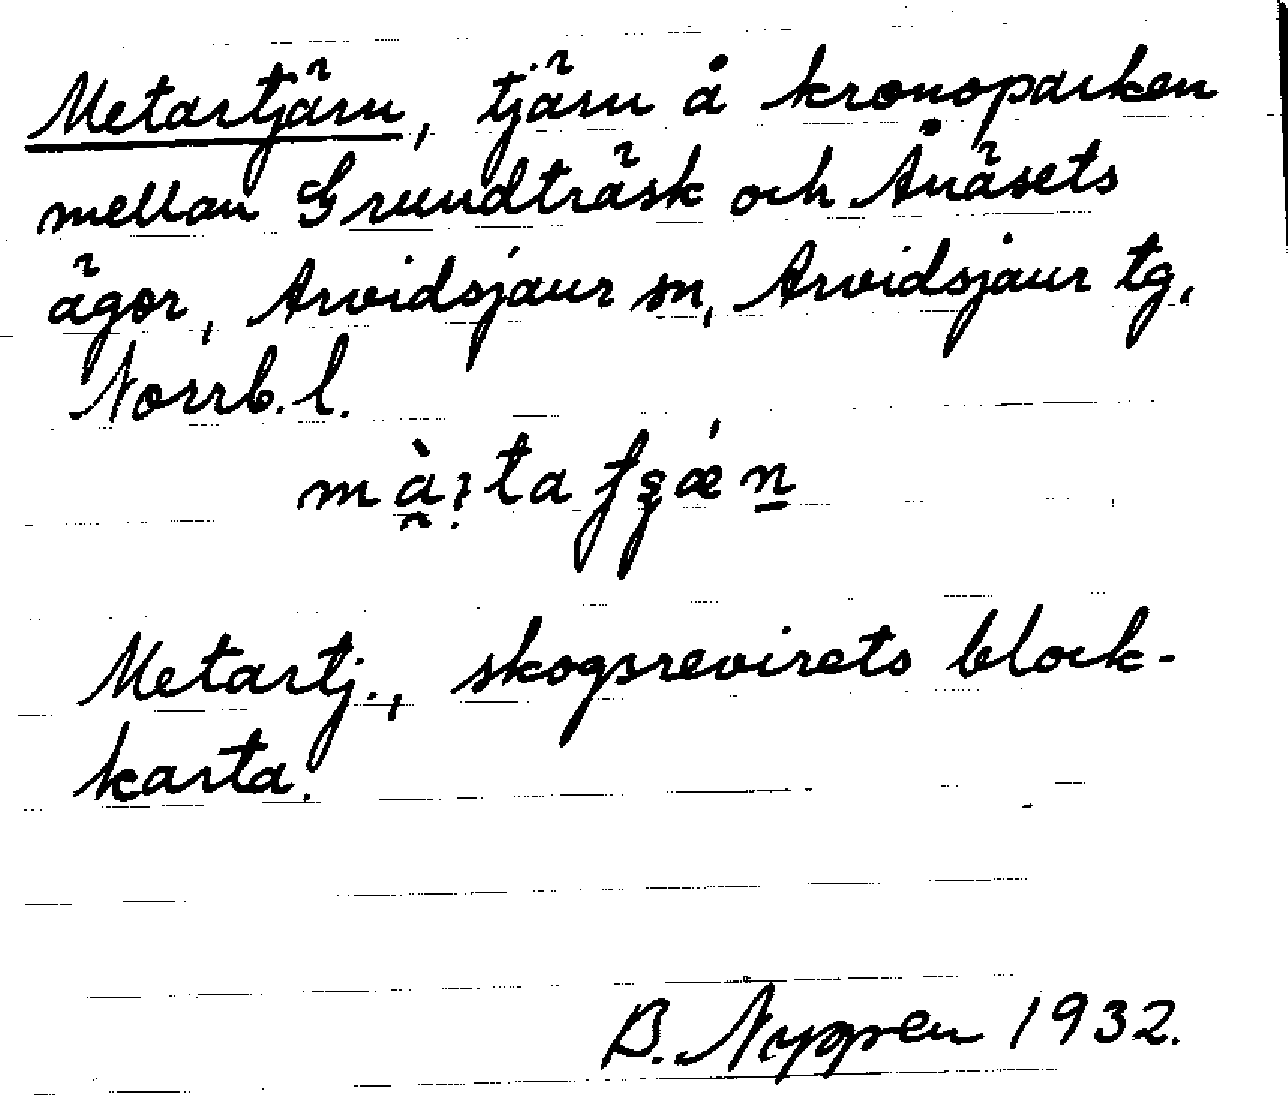 Metartjärn, tjärn å kronoparken
mellan Grundträsk och Ånäsets
ägor, Arvidsjaur sn, Arvidsjaur tg,
Norrb. l.
Metartj., skogsrevirets block-
karta.
B. Nygren 1932.